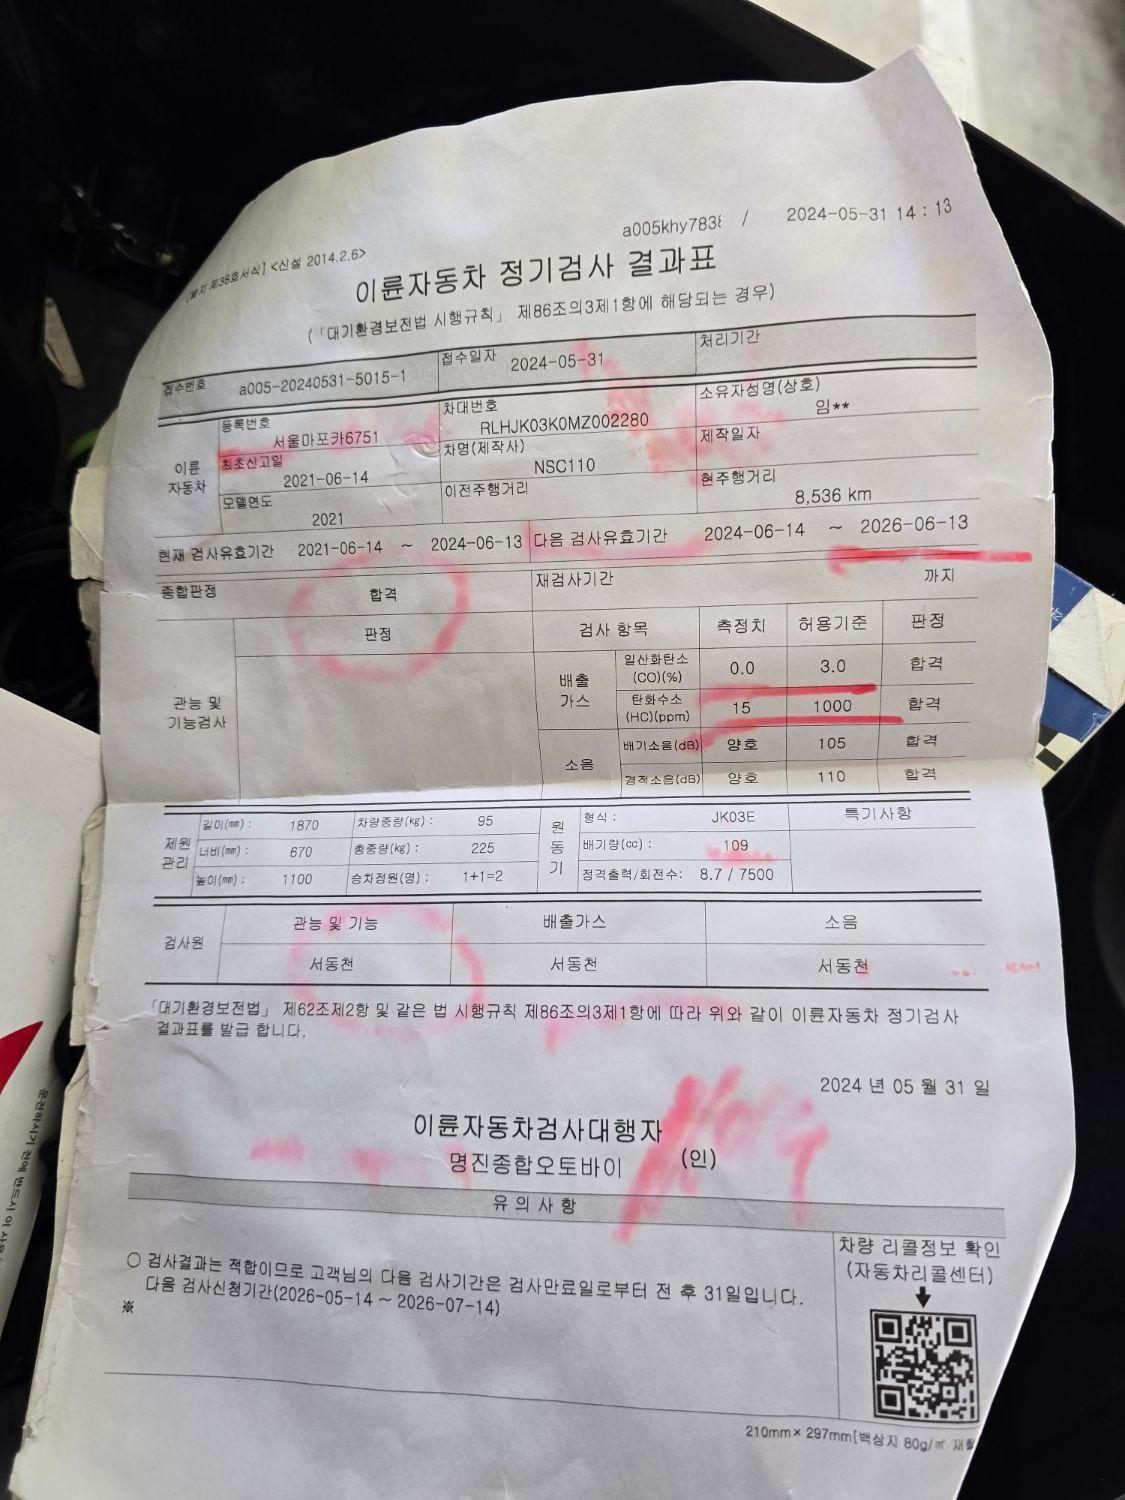 a005khy7838 / 2024-05-31 14 : 13
[별지 제38호서식] <신설 2014.2.6>
이륜자동차 정기검사 결과표
(「대기환경보전법 시행규칙」 제86조의3제1항에 해당되는 경우)
접수번호 a005-20240531-5015-1 접수일자 2024-05-31 처리기간
이륜자동차
등록번호 서울마포카6751 차대번호 RLHJK03K0MZ002280 소유자성명(상호) 임**
최초신고일 2021-06-14 차명(제작사) NSC110 제작일자
모델연도 2021 이전주행거리 현주행거리 8,536 km
현재 검사유효기간 2021-06-14 ~ 2024-06-13 다음 검사유효기간 2024-06-14 ~ 2026-06-13
종합판정 합격 재검사기간 까지
관능 및 기능검사 판정 검사 항목 측정치 허용기준 판정
배출가스 일산화탄소(CO)(%) 0.0 3.0 합격
탄화수소(HC)(ppm) 15 1000 합격
소음 배기소음(dB) 양호 105 합격
경적소음(dB) 양호 110 합격
제원관리 길이(㎜) : 1870 차량중량(kg) : 95 원동기 형식 : JK03E 특기사항
너비(㎜) : 670 총중량(kg) : 225 배기량(cc) : 109
높이(㎜) : 1100 승차정원(명) : 1+1=2 정격출력/회전수: 8.7 / 7500
검사원 관능 및 기능 배출가스 소음
서동천 서동천 서동천
「대기환경보전법」 제62조제2항 및 같은 법 시행규칙 제86조의3제1항에 따라 위와 같이 이륜자동차 정기검사
결과표를 발급 합니다.
2024 년 05 월 31 일
이륜자동차검사대행자
명진종합오토바이 (인)
유 의 사 항
○ 검사결과는 적합이므로 고객님의 다음 검사기간은 검사만료일로부터 전 후 31일입니다.
다음 검사신청기간(2026-05-14 ~ 2026-07-14)
※
차량 리콜정보 확인
(자동차리콜센터)
210mm× 297mm[백상지 80g/㎡
운전하시기 전에 반드시 이